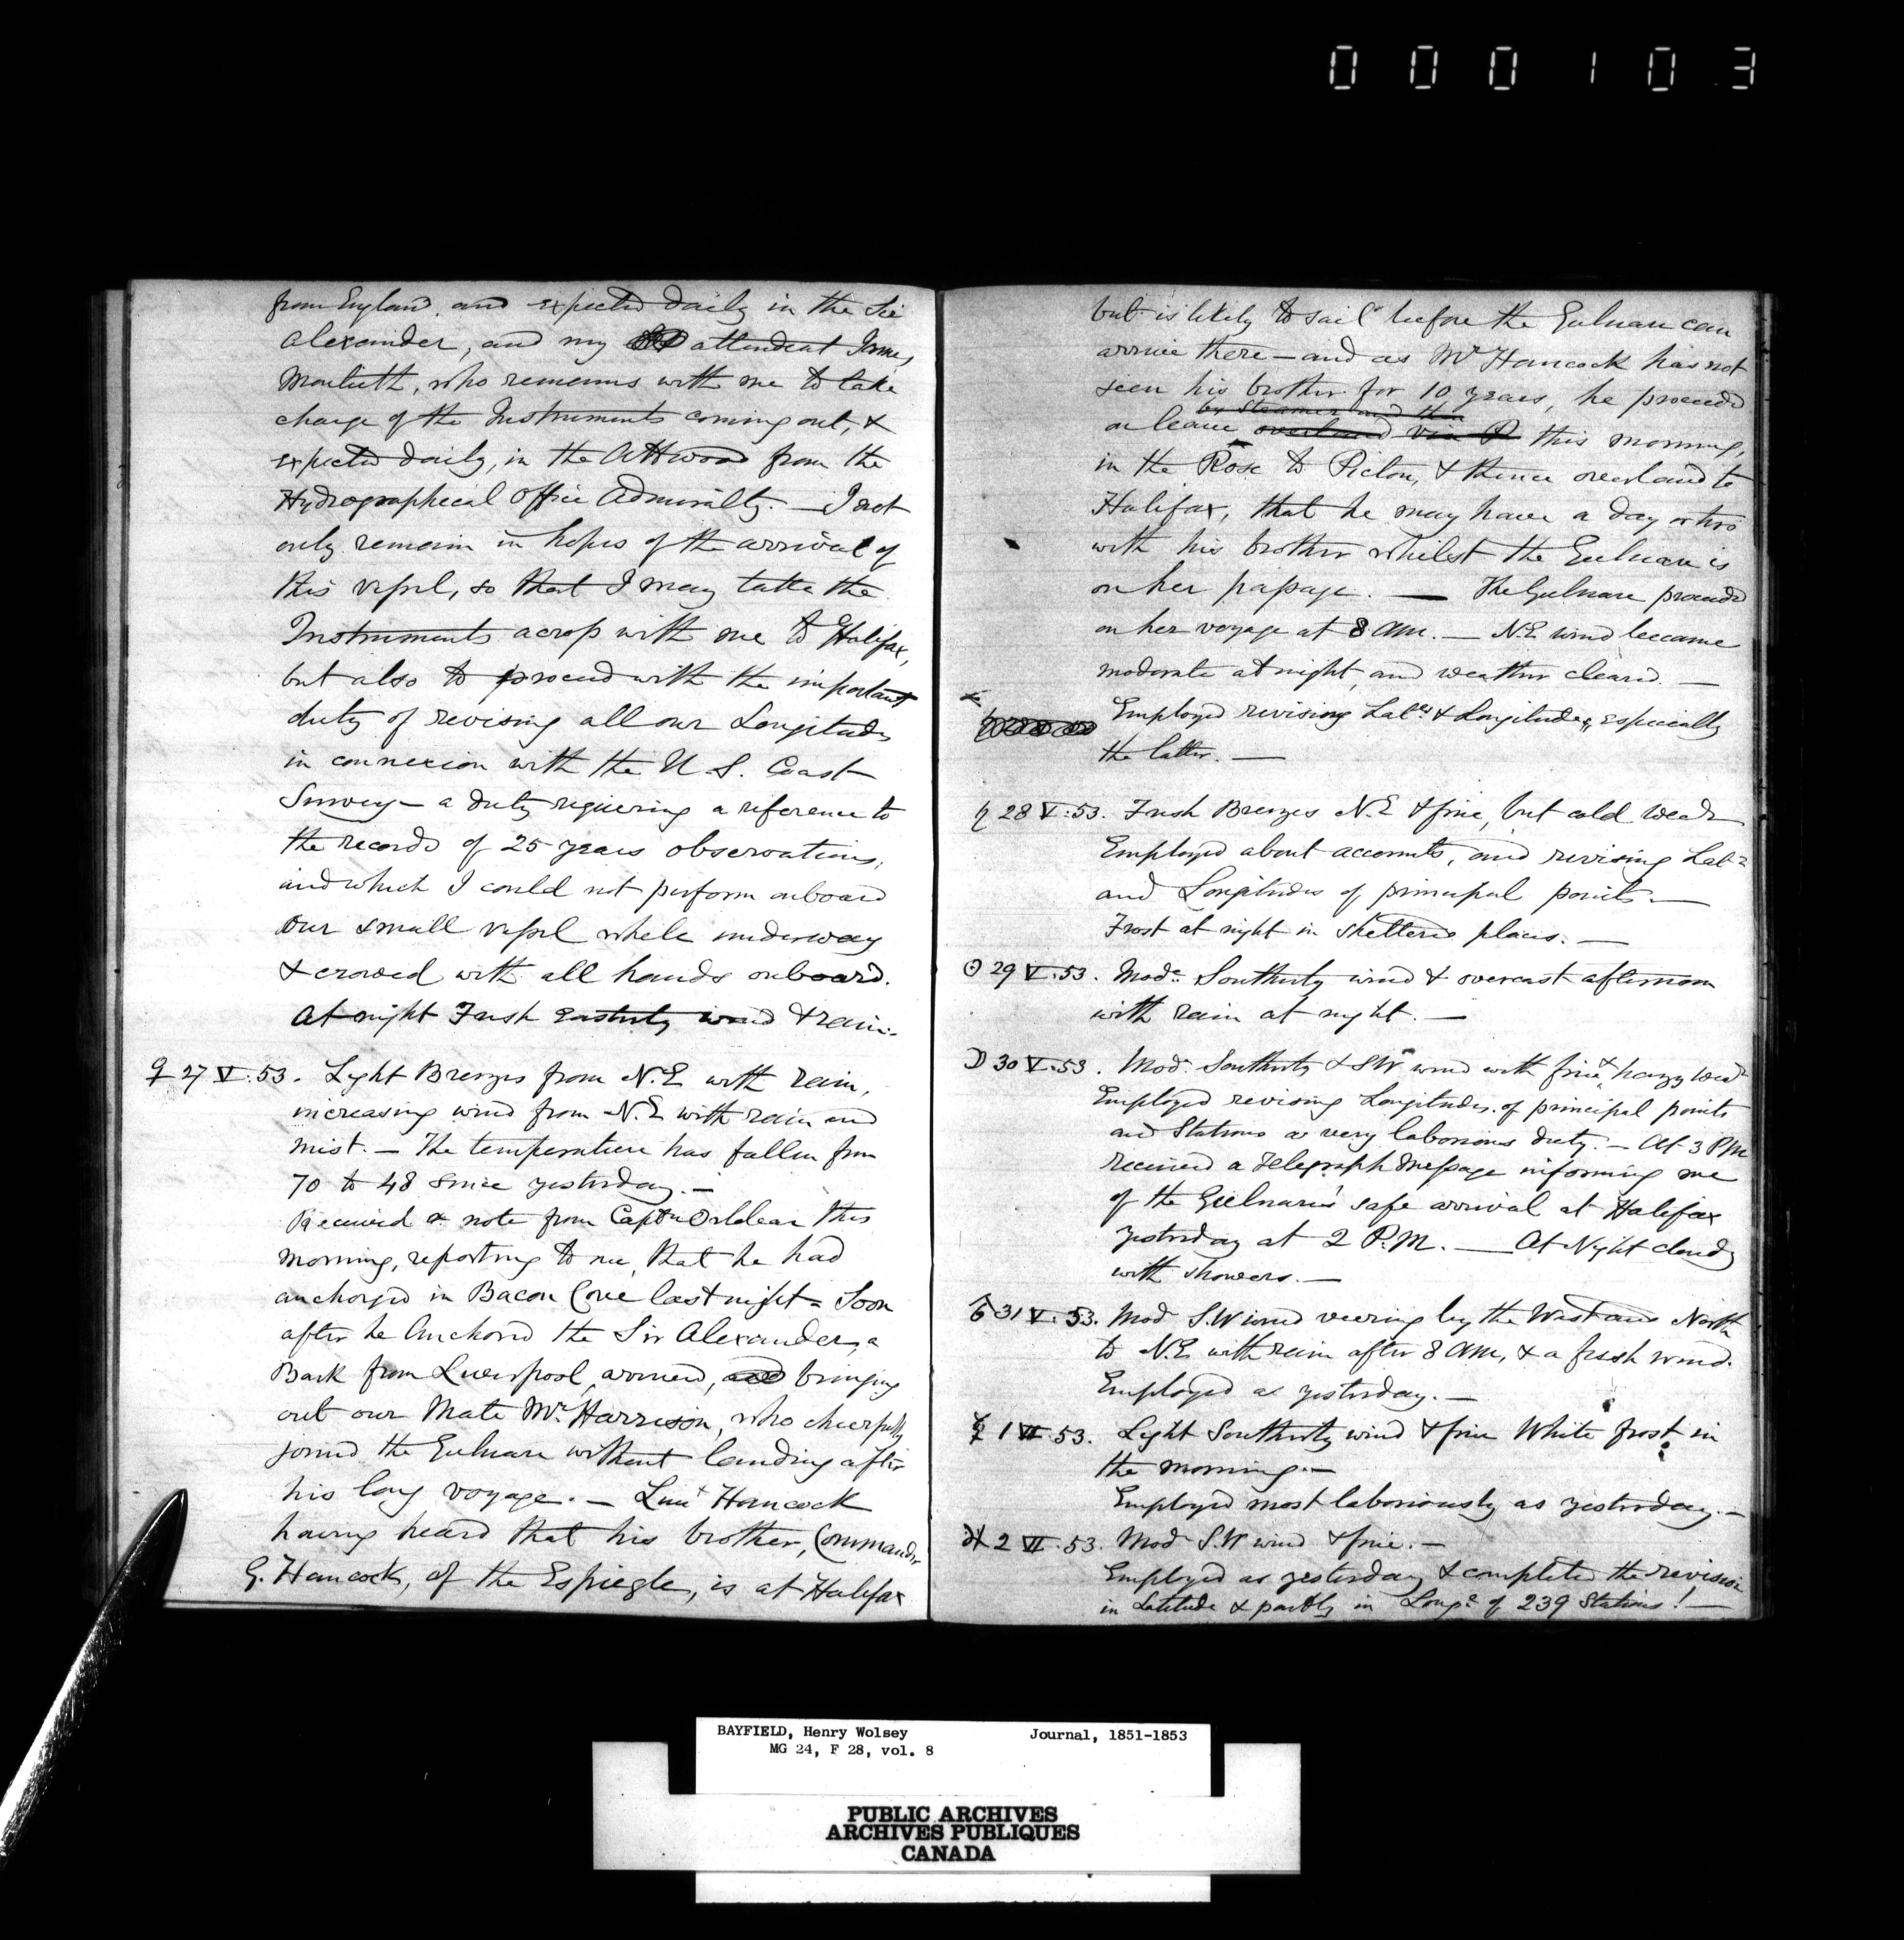 000103
from England. and expected daily in the Sir
Alexander, and my attendant James
Monteith, who remains with me to take
charge of the Instruments coming out, &
expected daily, in the Attwood from the
Hydrographical Office Admiralty. — I not
only remain in hopes of the arrival of
this vessel, so that I may take the
Instruments across with me to Halifax,
but also to proceed with the important
duty of revising all our Longitudes
in connexion with the U.S. Coast
Survey — a duty requiering a reference to
the records of 25 years observations,
and which I could not perform onboard
our small vessel while underway
& crowed with all hands onboard.
At night Fresh Easterly wind & rain.
♀ 27 V. 53. Light Breezes from N.E with rain,
increasing wind from N.E with rain and
mist. — The temperature has fallen from
70 to 48 since yesterday. —
Received a note from Captn Orlebar this
morning, reporting to me, that he had
anchored in Bacon Cove last night = Soon
after he Anchored the Sir Alexander, a
Bark from Liverpool, arrived, and bringing
out our Mate Mr. Harrison, who cheerfully
joined the Gulnare without landing after
his long voyage. — Lieut Hancock
having heard that his brother, Commander
G. Hancock, of the Espiegle, is at Halifax
but is likely to sail before the Gulnare can
arrive there — and as Mr Hancock has not
seen his brother for 10 years, he proceeded
by Steamer and then
on leave overland via P this morning,
in the Rose to Pictou, & thence overland to
Halifax, that he may have a day or two
with his brother whilst the Gulnare is
on her passage. — The Gulnare proceeded
on her voyage at 8 AM. — N.E wind became
moderate at night, and weather cleared. —
Employed revising Lat.es & Longitudes, especially
the latter. —
♄ 28 V. 53. Fresh Breezes N.E & fine, but cold weadr
Employed about accounts, and revising Lat.s
and Longitudes of principal points —
Frost at night in sheltered places. —
☉ 29 V. 53. Mode. Southerly wind & overcast afternoon
with rain at night. —
☽ 30 V. 53. Mode. Southerly & SW wind with fine & hazy wear
Employed revising Longitudes of principal points
and Stations a very laborious duty. — At 3 PM
received a Telegraph Message informing me
of the Gulnare's safe arrival at Halifax
yesterday at 2 P.M. — At Night cloudy
with showers. —
♂ 31 V. 53. Mod S.W wind veering by the West and North
to N.E with rain after 8 AM, & a fresh wind.
Employed as yesterday. —
☿ 1 VI. 53. Light Southerly wind & fine White frost in
the morning. —
Employed most laboriously as yesterday. —
♃ 2 VI. 53. Mode S.W wind & fine. —
Employed as yesterday & completed the revision
in Latitude & partly in Longe. of 239 Stations! —
BAYFIELD, Henry Wolsey Journal, 1851-1853
MG 24, F 28, vol. 8
PUBLIC ARCHIVES
ARCHIVES PUBLIQUES
CANADA